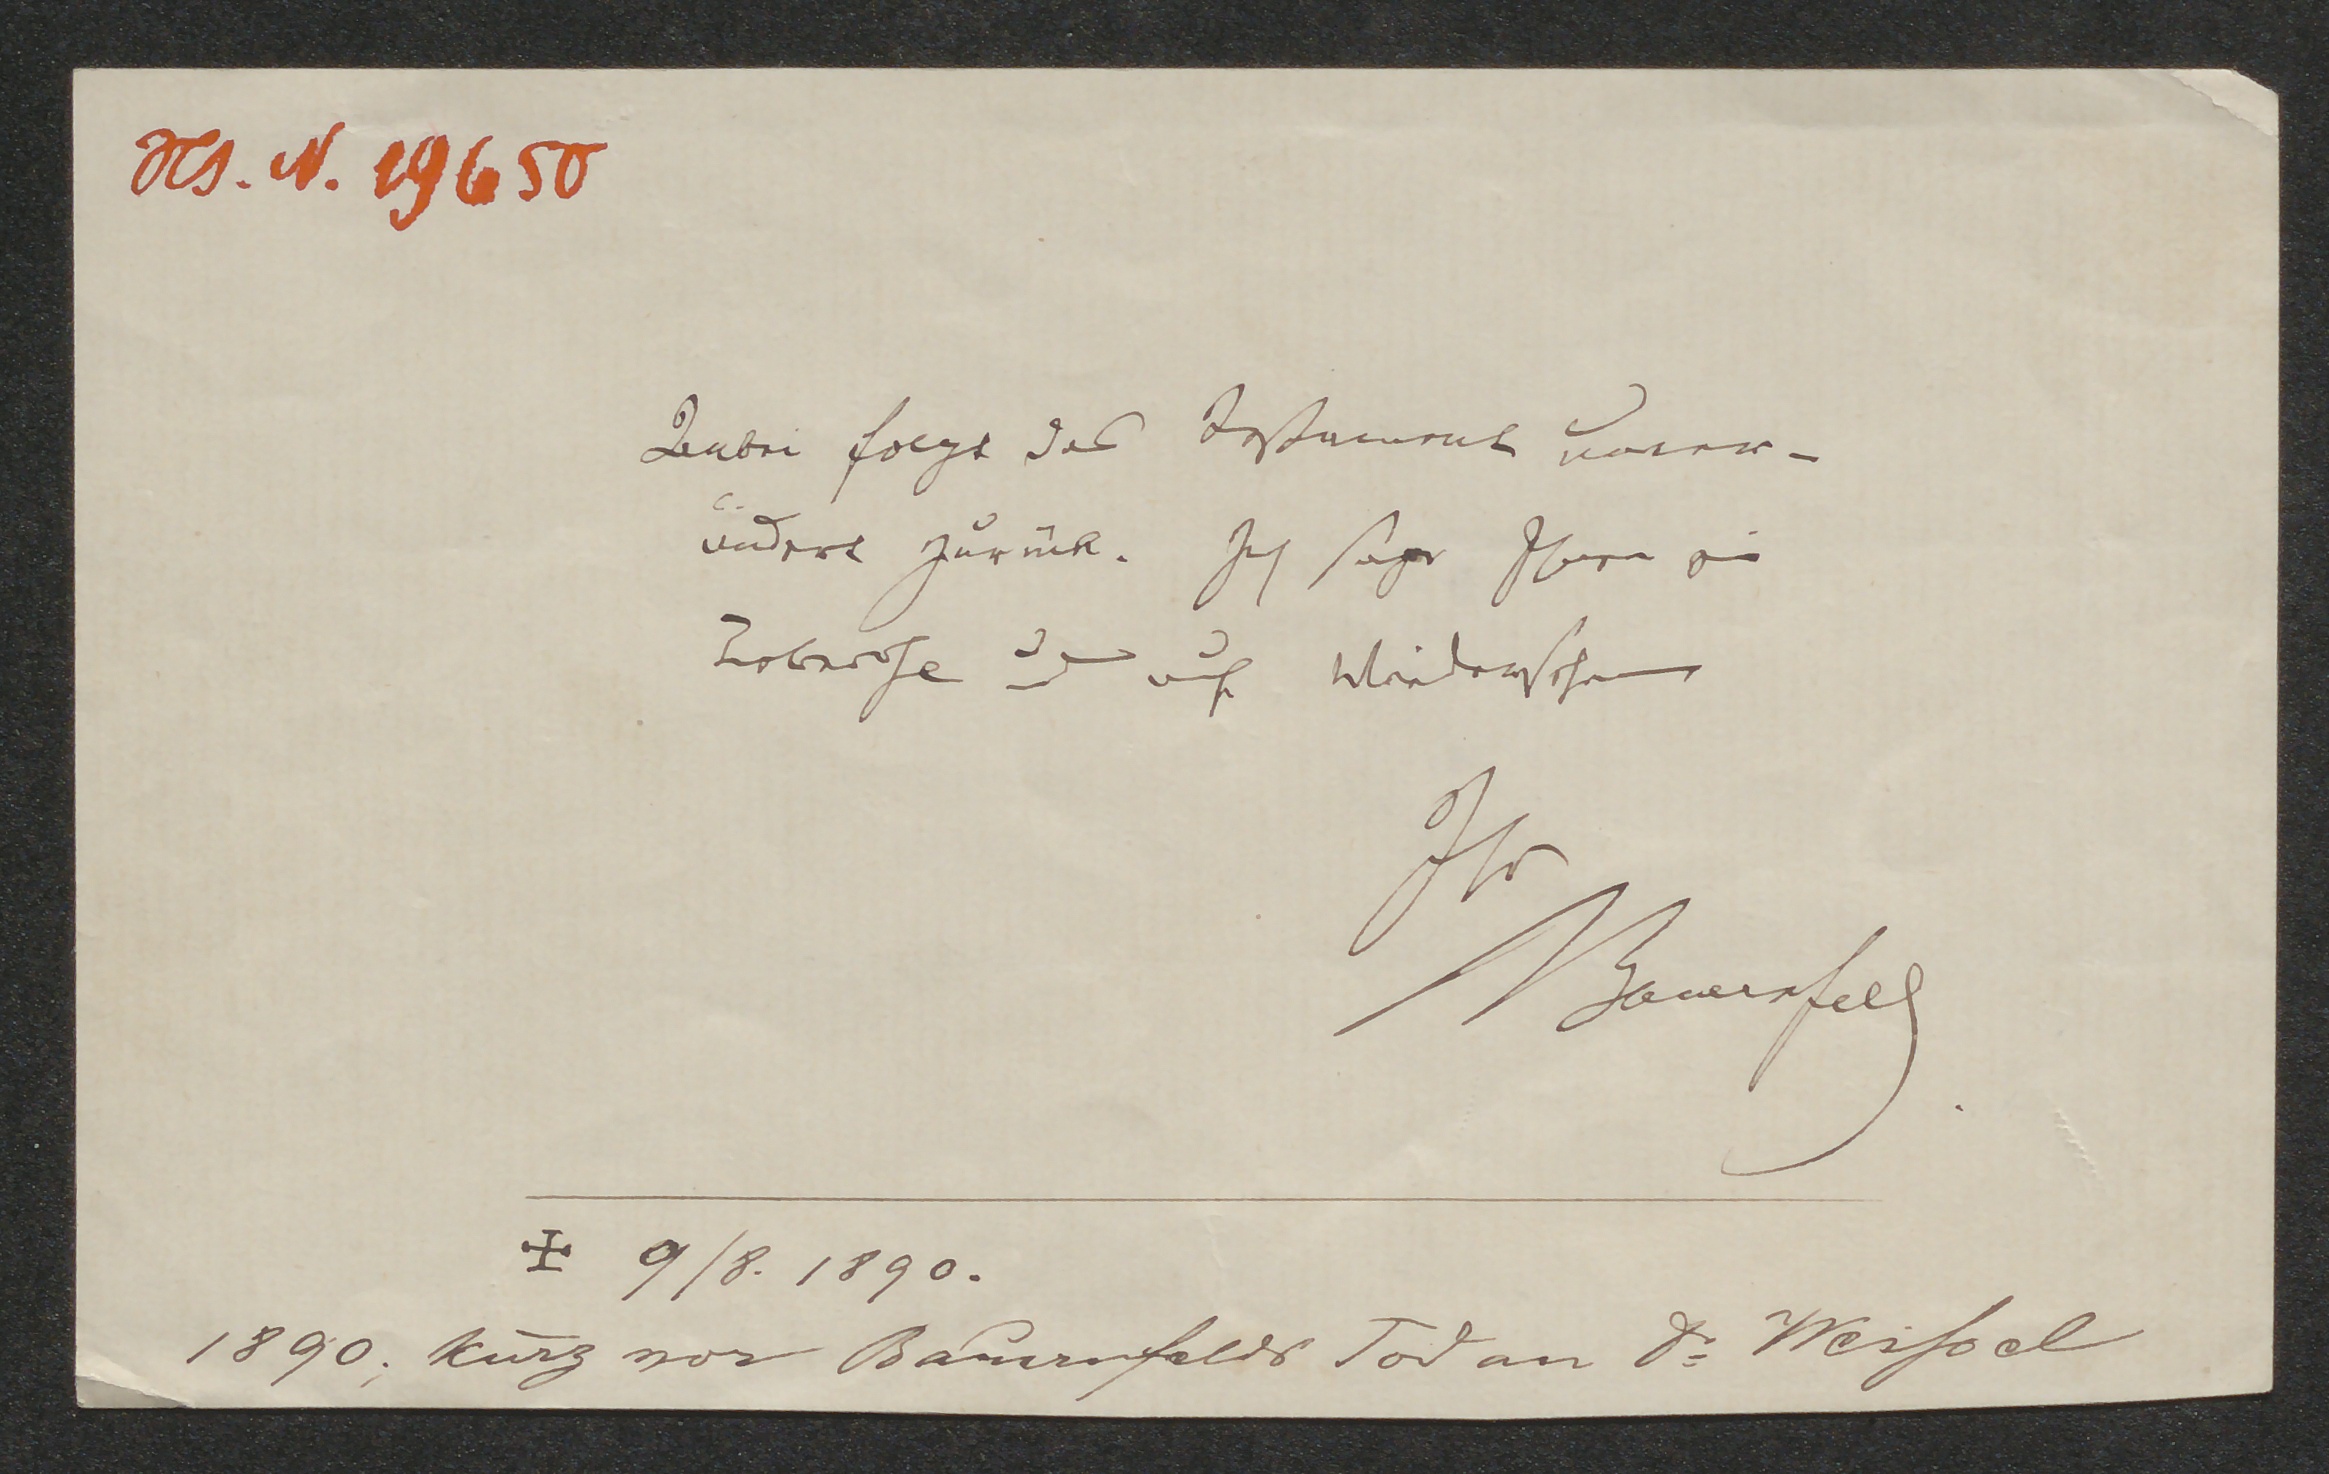 Hs. N. 19650
Anbei folgt das Testament unver-
ändert zurück. Ich sage Ihnen ein
Lebewohl und auf Wiedersehen
Ihr
Bauernfeld
✠ 9/8. 1890.
1890, kurz vor Bauernfelds Tod an Dr. Weissel